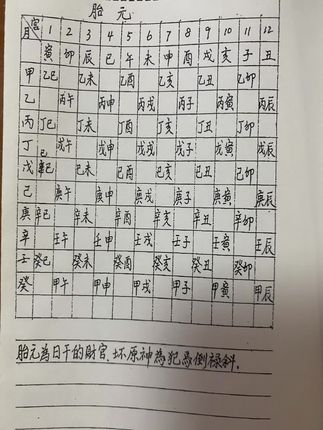 胎 元
宮 1 2 3 4 5 6 7 8 9 10 11 12
月 寅 卯 辰 巳 午 未 申 酉 戌 亥 子 丑
甲 乙巳 乙未 乙酉 乙亥 乙丑 乙卯
乙 丙午 丙申 丙戌 丙子 丙寅 丙辰
丙 丁巳 丁未 丁酉 丁亥 丁丑 丁卯
丁 戊午 戊申 戊戌 戊子 戊寅 戊辰
戊 己巳 己未 己酉 己亥 己丑 己卯
己 庚午 庚申 庚戌 庚子 庚寅 庚辰
庚 辛巳 辛未 辛酉 辛亥 辛丑 辛卯
辛 壬午 壬申 壬戌 壬子 壬寅 壬辰
壬 癸巳 癸未 癸酉 癸亥 癸丑 癸卯
癸 甲午 甲申 甲戌 甲子 甲寅 甲辰
胎元為日干的財官、坏原神為犯馬倒祿斜.